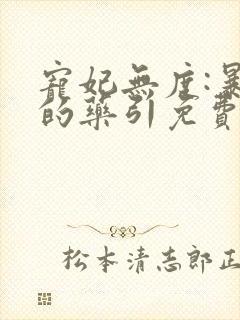 寵妃無度:暴
的藥引免費
松本清志郎正